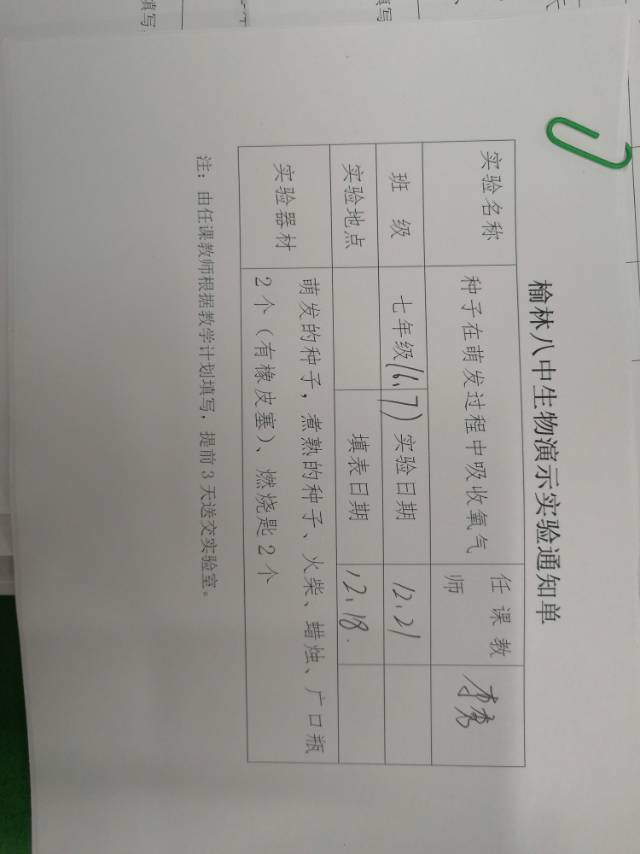 榆林八中生物演示实验通知单
实验名称 种子在萌发过程中吸收氧气 任课教师 李
班 级 七年级(6、7) 实验日期 12.21
实验地点 填表日期 12.18.
实验器材 萌发的种子，煮熟的种子、火柴、蜡烛、广口瓶
2个（有橡皮塞）、燃烧匙2个
注：由任课教师根据教学计划填写，提前3天送交实验室。
填写
填写